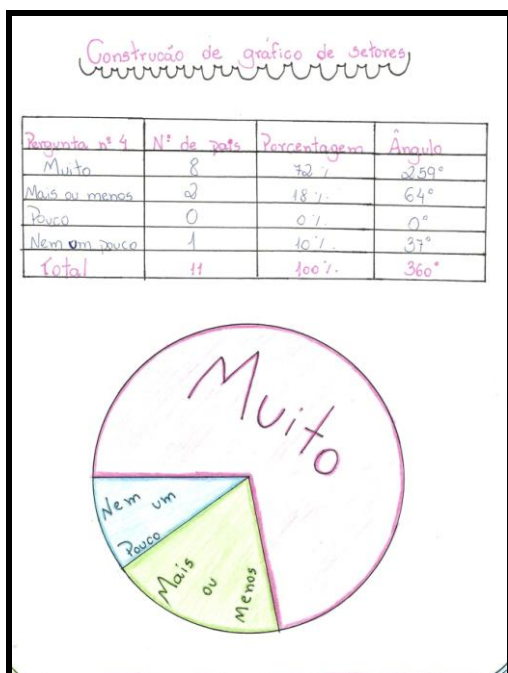 Construcão de gráfico de setores,
Pergunta nº 4 Nº de pais Porcentagem Ângulo
Muito 8 72 % 259°
Mais ou menos 2 18 % 64°
Pouco 0 0 % 0°
Nem um pouco 1 10 % 37°
Total 11 100 % 360°
Muito
Nem um
Pouco
Mais
ou
Menos